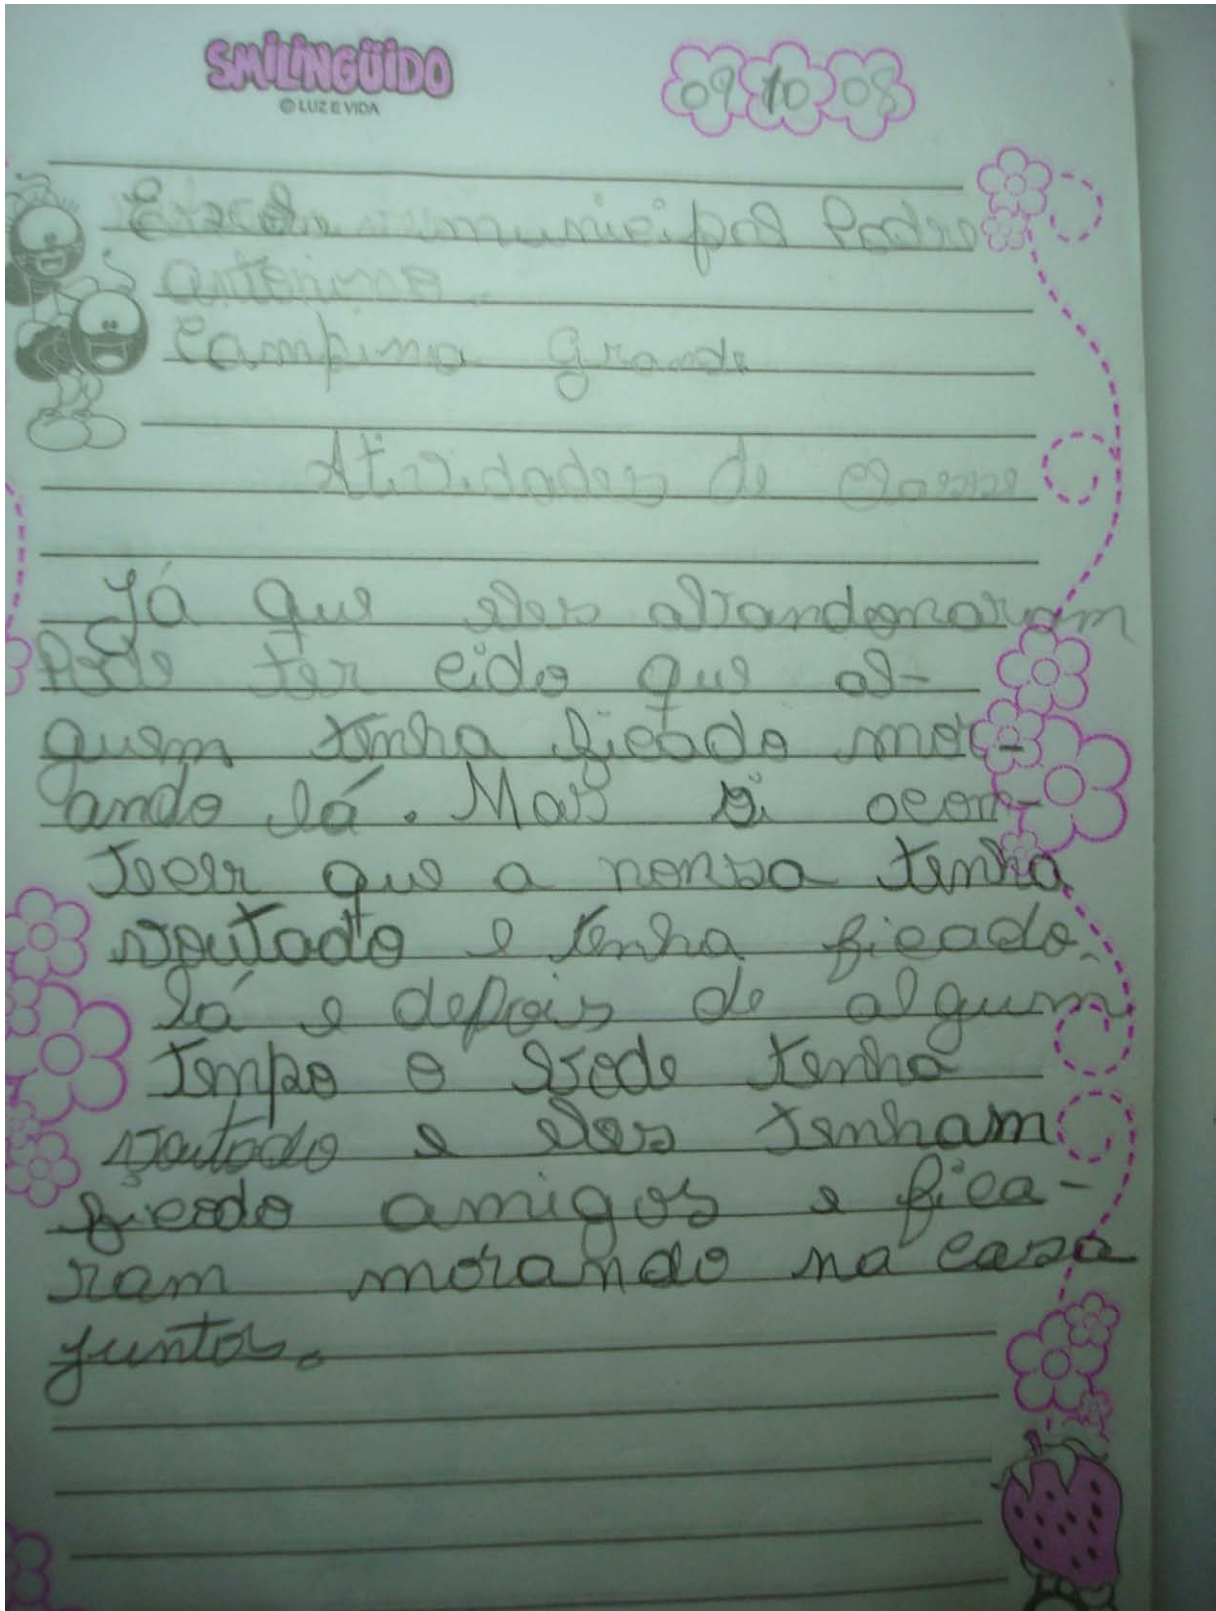 SMILINGÜIDO
© LUZ E VIDA
09 10 08
Escola municipal Padre
antonino
Campina grande
Atividades de classe
Já que eles abandonaram
Pode ter cido que al-
guem tenha ficado mor-
ando lá. Mas si acon-
teser que a nonsa tenha
voutado e tenha ficado
lá e depois de algum
tempo o bode tenha
voutado e eles tenham
ficado amigos e fica-
ram morando na casa
juntos.